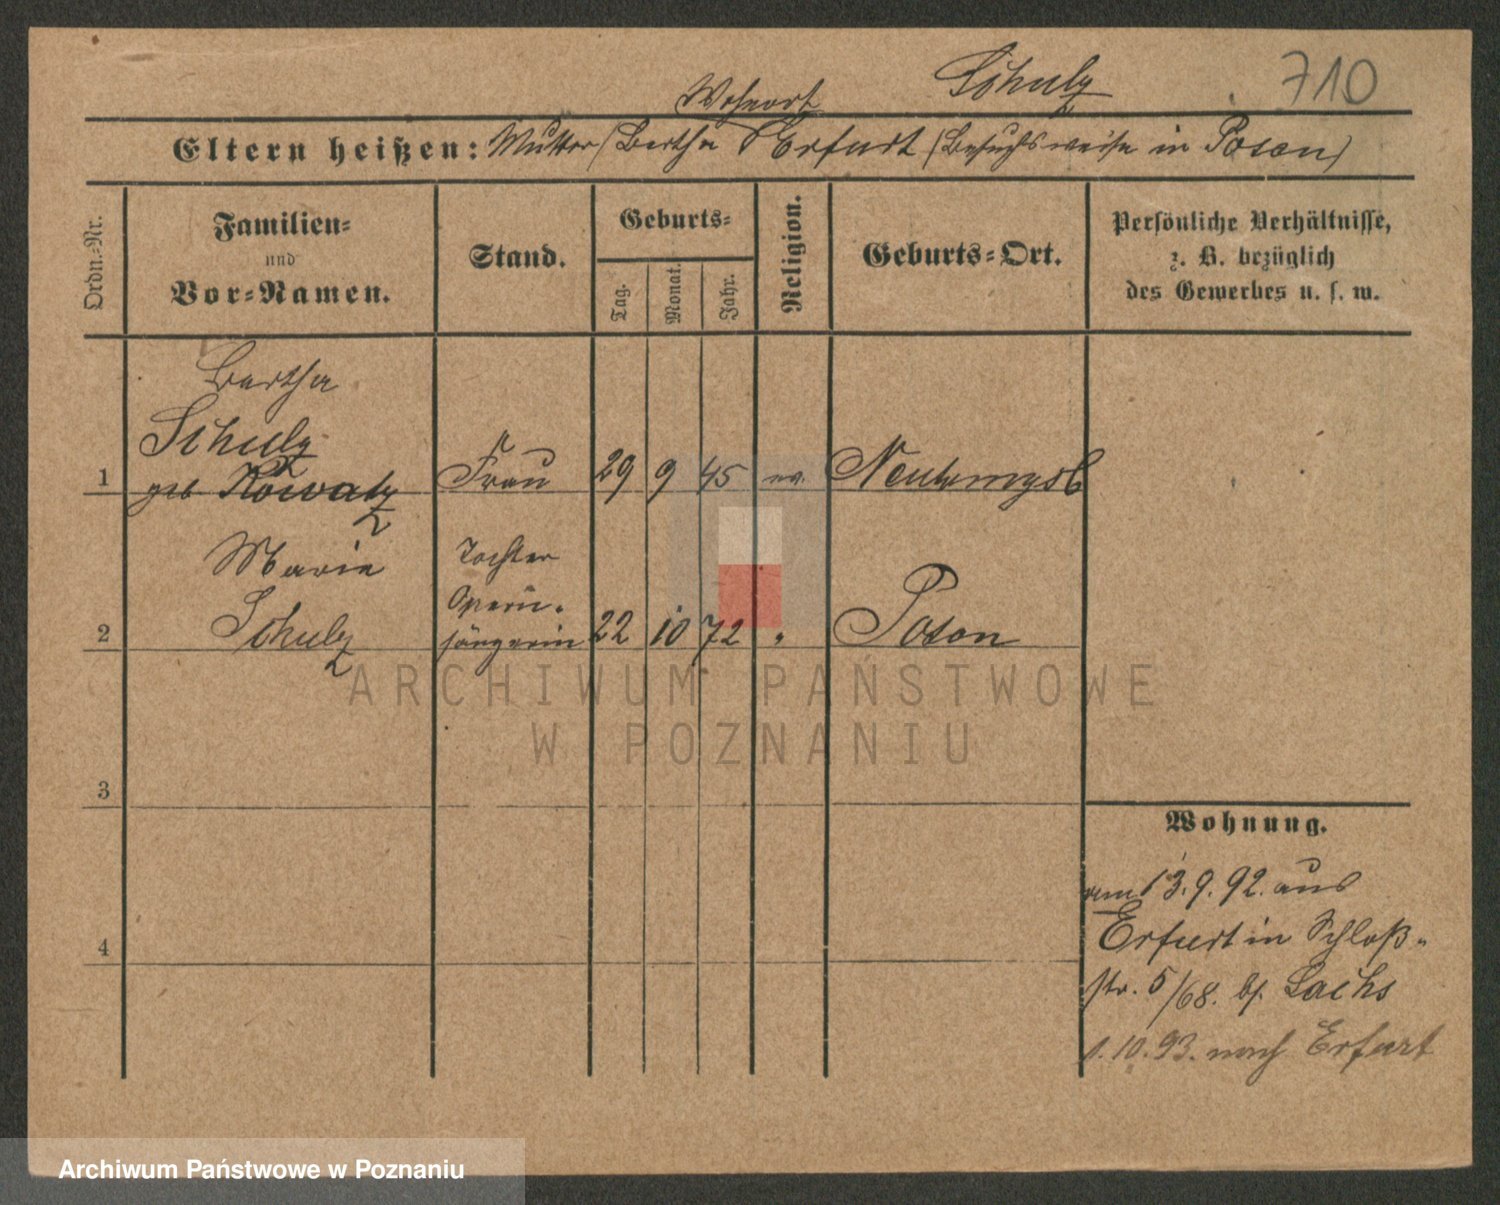 Schulz
710
Wohnort
Eltern heißen: Mutter (Bertha Erfurt (Besuchsweise in Posen)
Ordn.-Nr.
Familien-
und
Vor-Namen.
Stand.
Geburts-
Tag.
Monat.
Jahr.
Religion.
Geburts-Ort.
Persönliche Verhältnisse,
z. B. bezüglich
des Gewerbes u. s. w.
Bertha
Schulz
1 geb Kowatz Frau 29 9 45 ev. Neutomysl
Marie
Schulz
Tochter
Opern-
sängerin
2 22 10 72 " Posen
3
4
Wohnung.
am 13.9.92. aus
Erfurt in Schloß-
str. 5/68. bei Sachs
1.10.93. nach Erfurt
ARCHIWUM PAŃSTWOWE
W POZNANIU
Archiwum Państwowe w Poznaniu